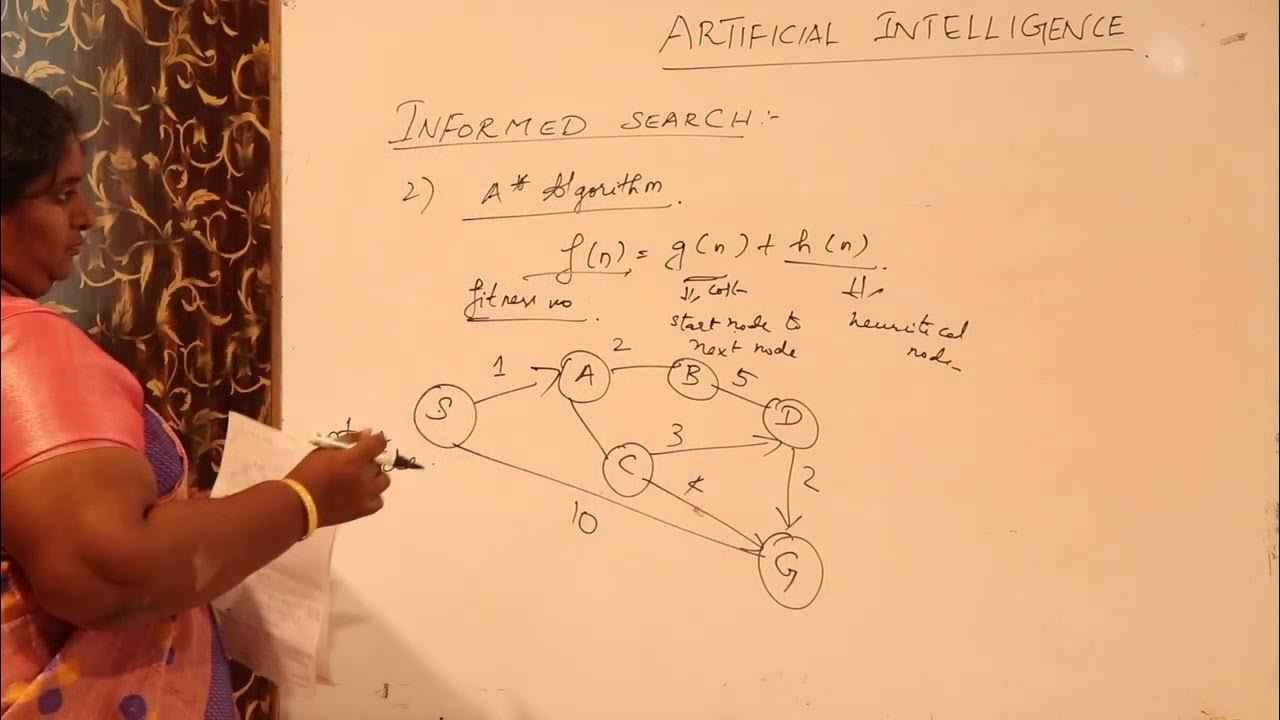 ARTIFICIAL INTELLIGENCE
INFORMED SEARCH :-
2) A* Algorithm.
f(n) = g(n) + h(n).
fitness no.
cost
start node to
next node
heuritical
node
1
2
S
A
B
5
D
3
C
2
10
G